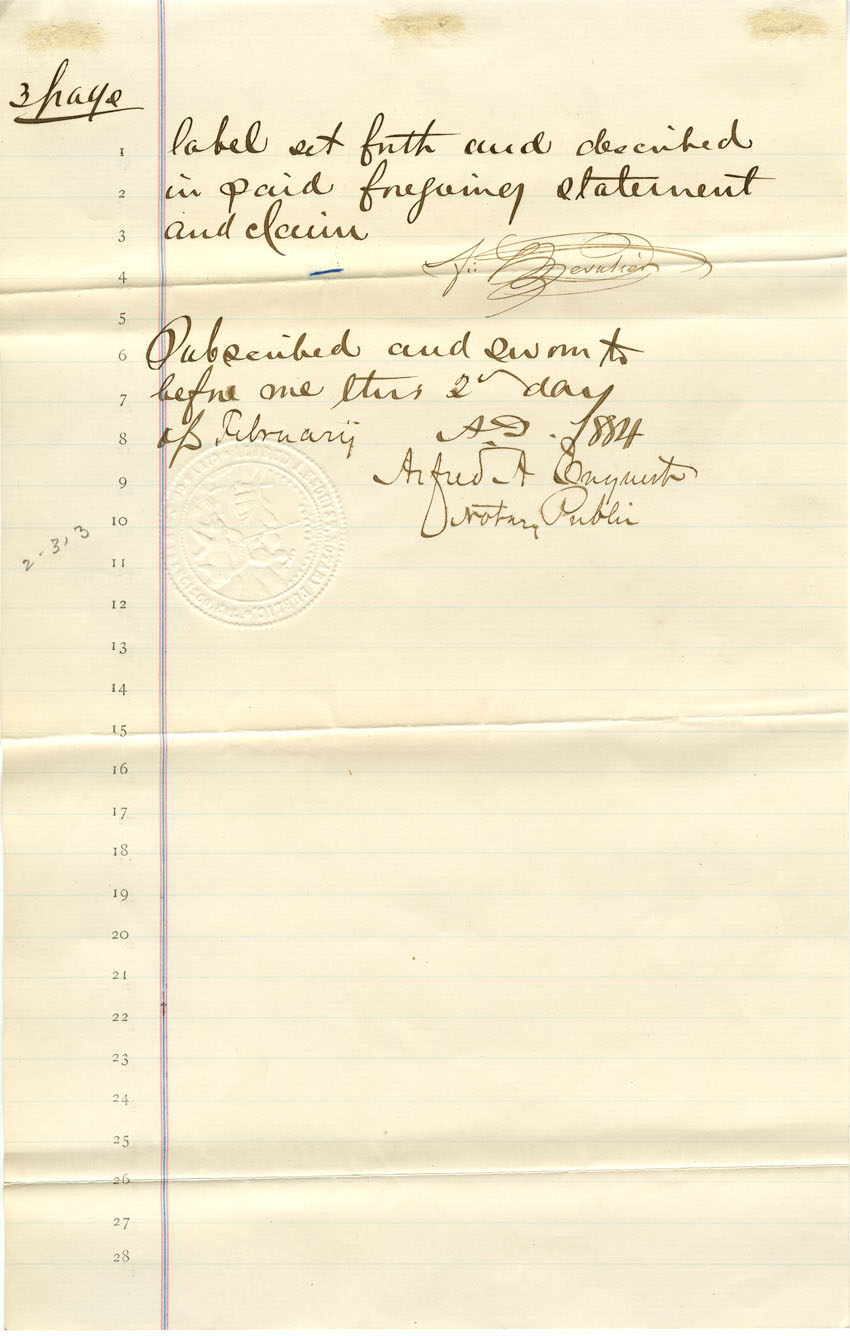 3 page
1 label set forth and described
2 in said foregoing statement
3 and claim
4
5
6 Subscribed and sworn to
7 before me this 2 day
8 of February A.D. 1884
9 Alfred A Enquist
10 Notary Public
2-3,3
11
12
13
14
15
16
17
18
19
20
21
22
23
24
25
26
27
28